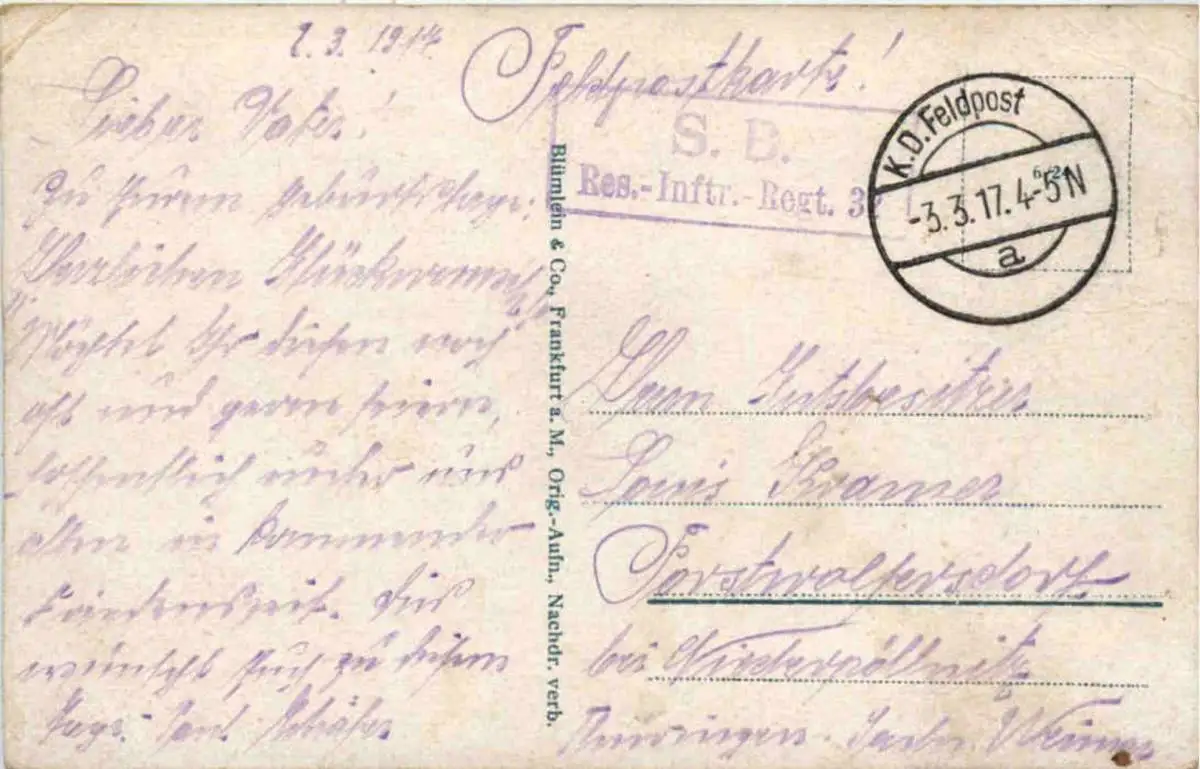 2.3.1917
Feldpostkarte!
Lieber Vater!
Zu Eurem Geburtstage:
Herzlichen Glückwunsch
Möchtet Ihr diesen noch
oft und gerne feiern,
hoffentlich wieder mit uns
allen in kommender
Friedenszeit. Dies
wünscht Euch zu diesem
Tage
S. B.
Res.-Inftr.-Regt. 3
K.D.Feldpost
-3.3.17.4-5N
a
Blümlein & Co., Frankfurt a. M., Orig.-Aufn., Nachdr. verb.
Herrn Gutsbesitzer
Louis Kramer
Forstwolfersdorf
bei Niederpöllnitz
Thüringen Sachs. Weimar